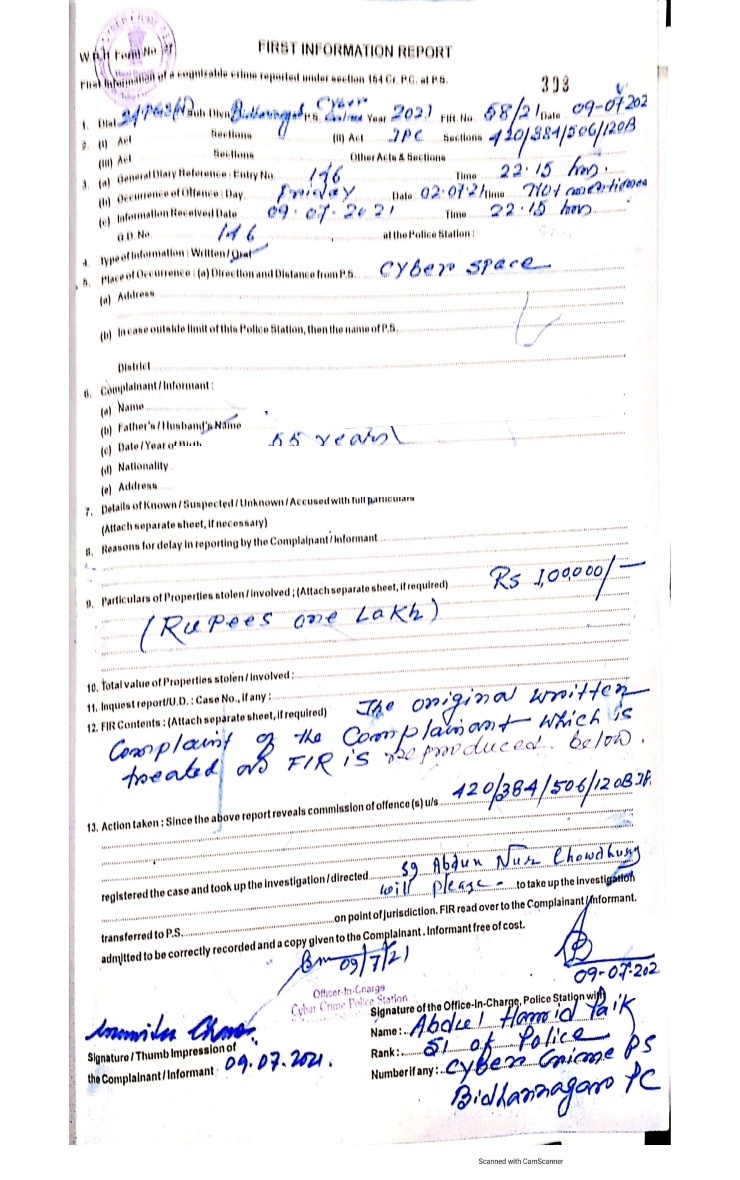 W.B.P. Form No. 27
FIRST INFORMATION REPORT
First Information of a cognizable crime reported under section 154 Cr. P.C. at P.S.
393
1. Dist. 24 PGS(N) Sub-Divn. Bidhannagar P.S. Cyber Crime Year 2021 FIR No. 58/21 Date 09-07-202
2. (i) Act Sections (ii) Act IPC Sections 420/384/506/120B
(iii) Act Sections Other Acts & Sections
3. (a) General Diary Reference : Entry No. 196 Time 22.15 hrs.
(b) Occurrence of Offence : Day Friday Date 02.07.21 Time Not mentioned
(c) Information Received Date 09.07.2021 Time 22.15 hrs
G.D. No. 196 at the Police Station :
4. Type of Information : Written / Oral
5. Place of Occurrence : (a) Direction and Distance from P.S. Cyber space
(a) Address
(b) In case outside limit of this Police Station, then the name of P.S.
District
6. Complainant / Informant :
(a) Name
(b) Father's / Husband's Name
(c) Date / Year of Birth 55 years
(d) Nationality
(e) Address
7. Details of Known / Suspected / Unknown / Accused with full particulars
(Attach separate sheet, if necessary)
8. Reasons for delay in reporting by the Complainant / Informant
9. Particulars of Properties stolen / involved ; (Attach separate sheet, if required) Rs 1,00,000/-
(Rupees one Lakh)
10. Total value of Properties stolen / Involved :
11. Inquest report/U.D. : Case No., if any :
12. FIR Contents : (Attach separate sheet, if required) The original written
Complaint of the Complainant which is
treated as FIR is reproduced below.
13. Action taken : Since the above report reveals commission of offence (s) u/s 420/384/506/120B IPC
registered the case and took up the investigation / directed SI Abdun Nur Chowdhury
will please - to take up the Investigation
transferred to P.S. on point of jurisdiction. FIR read over to the Complainant / Informant.
admitted to be correctly recorded and a copy given to the Complainant . Informant free of cost.
09/7/21
09-07-202
Officer-In-Charge
Cyber Crime Police Station
Signature of the Office-In-Charge, Police Station with
Name : Abdul Hamid Paik
Rank : SI of Police
Number if any : Cyber Crime PS
Bidhannagar PC
Signature / Thumb Impression of
the Complainant / Informant 09.07.2021.
Scanned with CamScanner